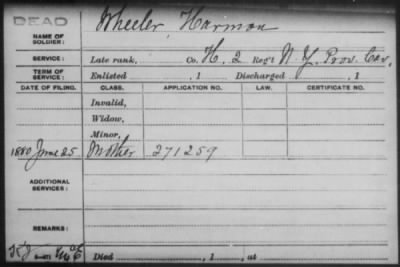 DEAD
NAME OF SOLDIER: Wheeler, Harmon
SERVICE: Late rank, Co. H, 2 Reg't N. Y. Prov. Cav.
TERM OF SERVICE: Enlisted , 1 Discharged , 1
DATE OF FILING. CLASS. APPLICATION NO. LAW. CERTIFICATE NO.
Invalid,
Widow,
Minor,
1880 June 25 Mother 271259
ADDITIONAL SERVICES:
REMARKS:
Died , 1 , at